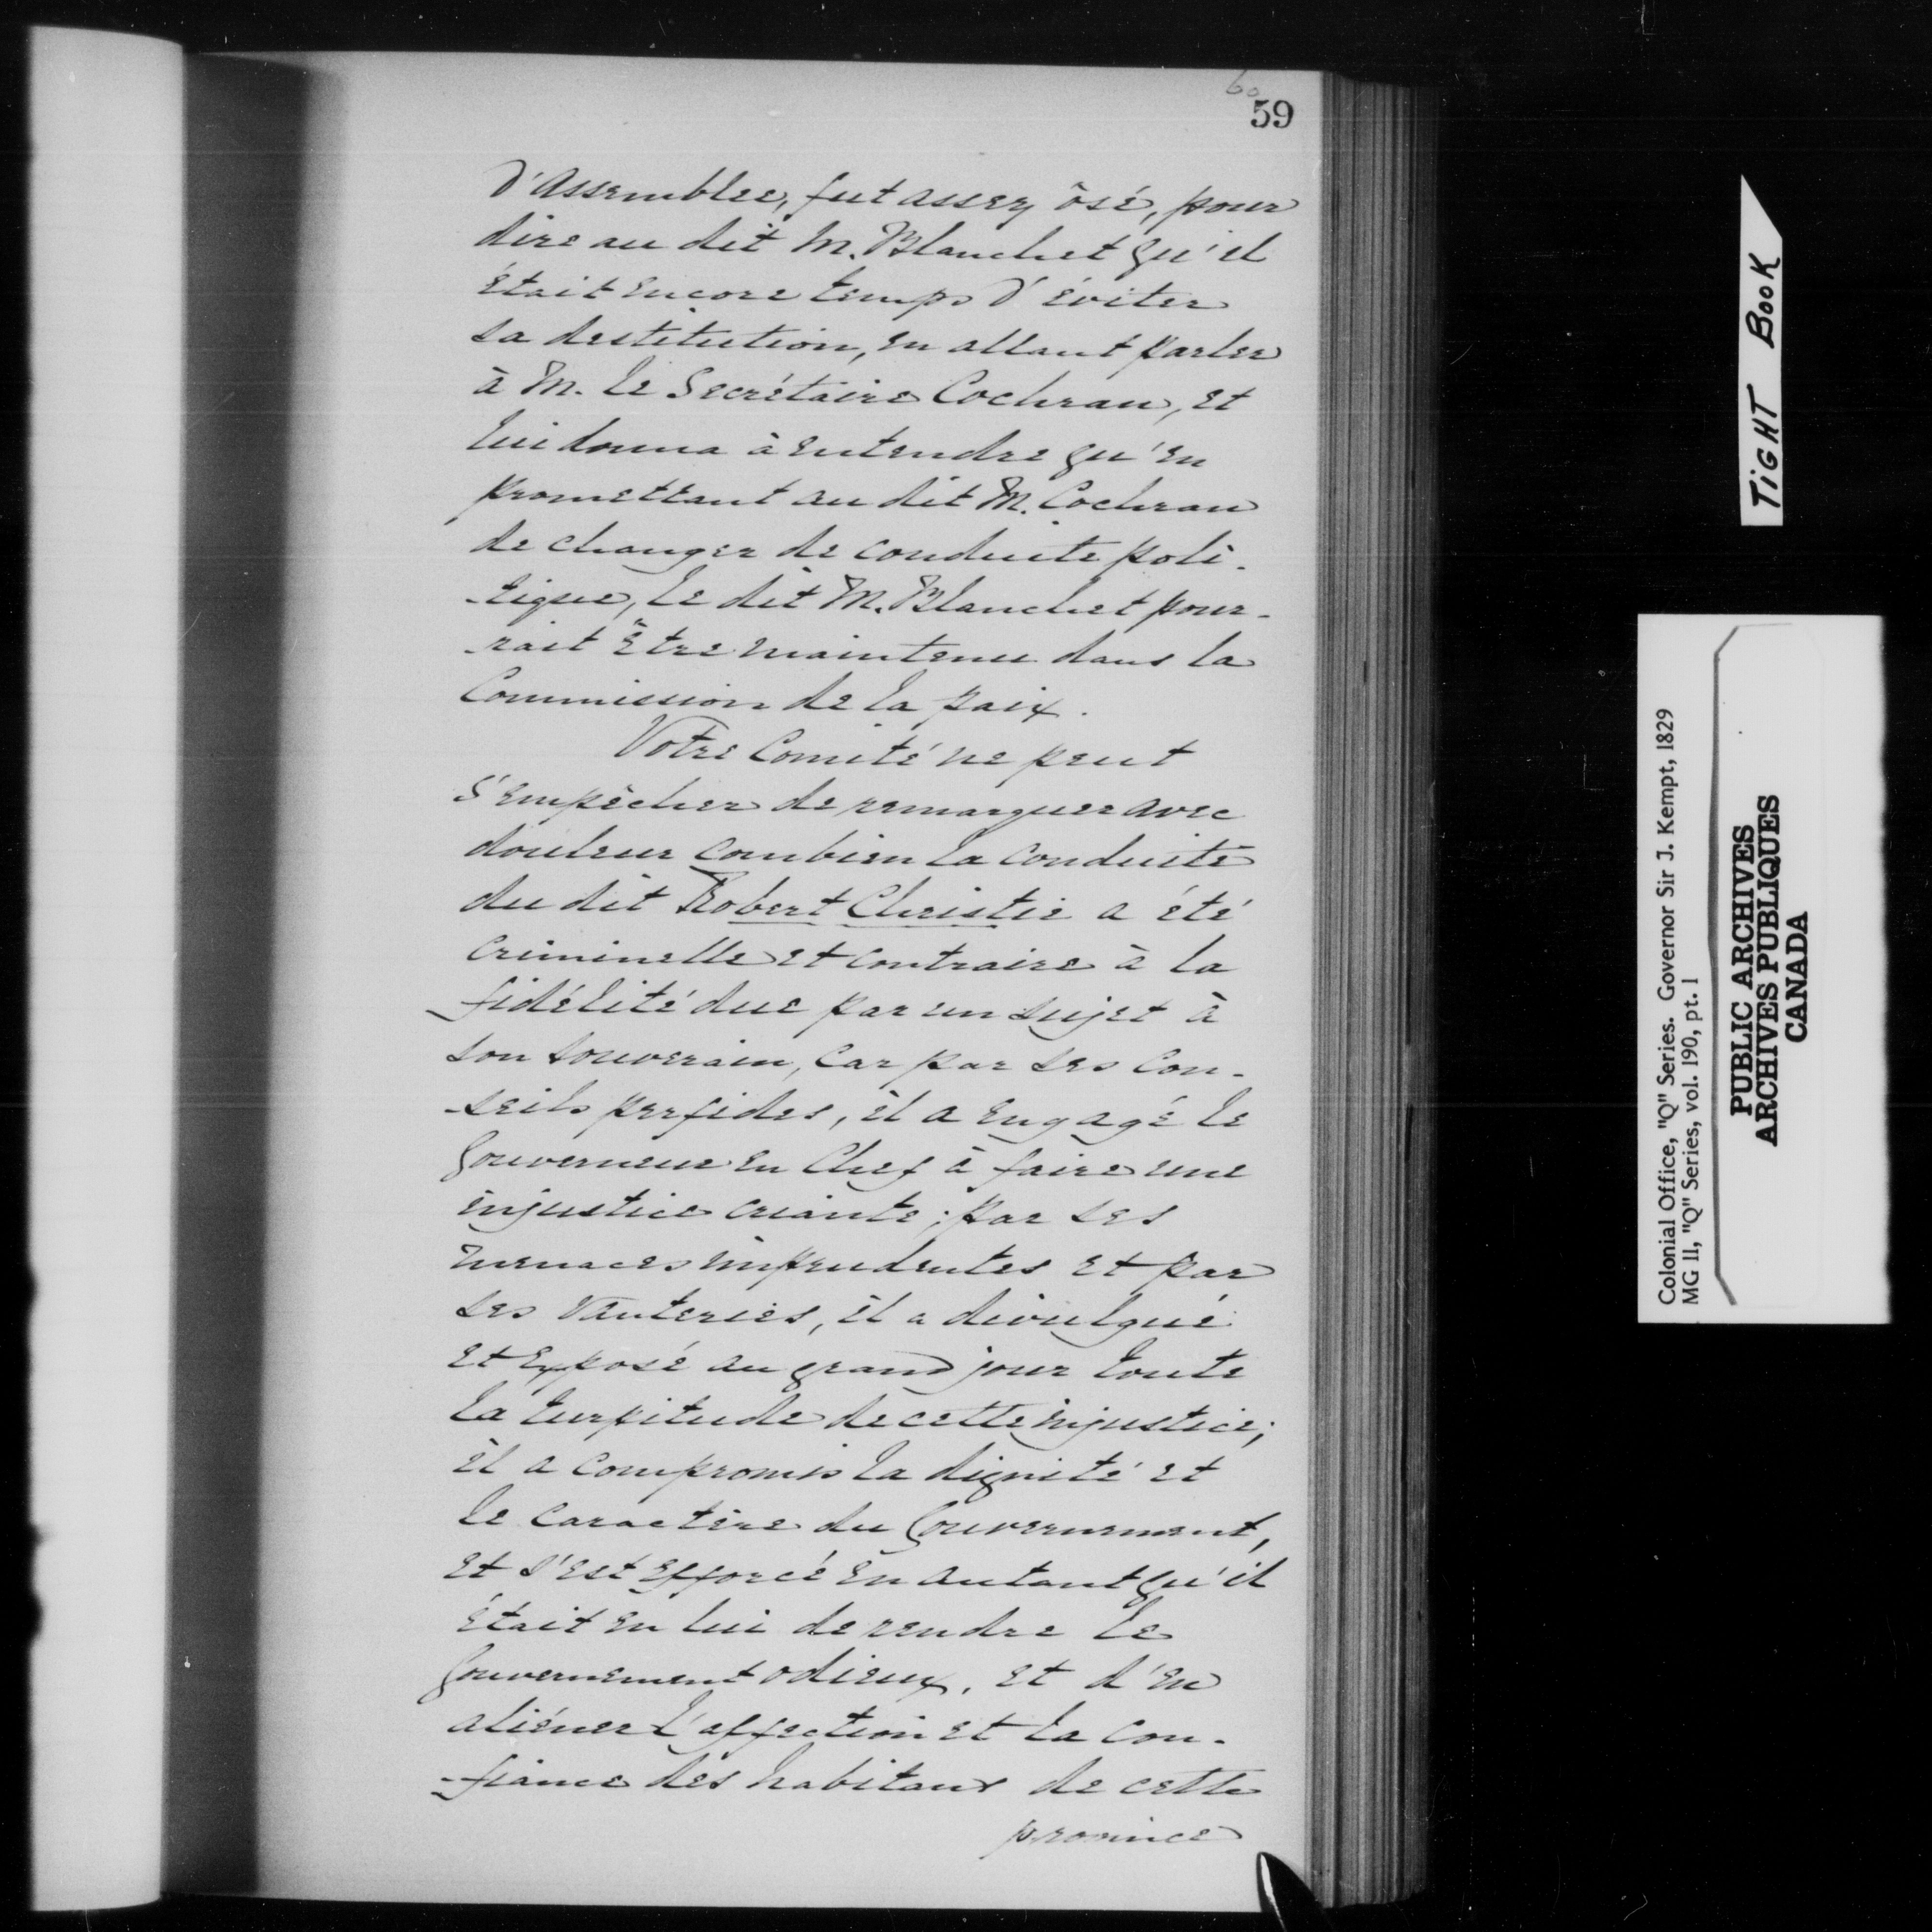 60
59
d'Assemblée, fut assez ôsé, pour
dire au dit M. Blanchet qu'il
était encore temps d'éviter
sa destitution, en allant parler
à M. le Secrétaire Cochran, et
lui donna à entendre qu'en
promettant au dit M. Cochran
de changer de conduite poli-
-tique, le dit M. Blanchet pour-
-rait être maintenu dans la
Commission de la paix.
Votre Comité ne peut
s'empêcher de remarquer avec
douleur combien la conduite
du dit Robert Christie a été
criminelle et contraire à la
fidélité due par un sujet à
son souverain, car par ses con-
-seils perfides, il a engagé le
Gouverneur en Chef à faire une
injustice criante; par ses
menaces imprudentes et par
ses vanteries, il a divulgué
et exposé au grand jour toute
la turpitude de cette injustice;
il a compromis la dignité et
le caractère du Gouvernement,
et s'est efforcé en autant qu'il
était en lui de rendre le
Gouvernement odieux, et d'en
aliéner l'affection et la con-
-fiance des habitans de cette
province
TiGHT BooK
Colonial Office, "Q" Series. Governor Sir J. Kempt, 1829
MG 11, "Q" Series, vol. 190, pt. 1
PUBLIC ARCHIVES
ARCHIVES PUBLIQUES
CANADA